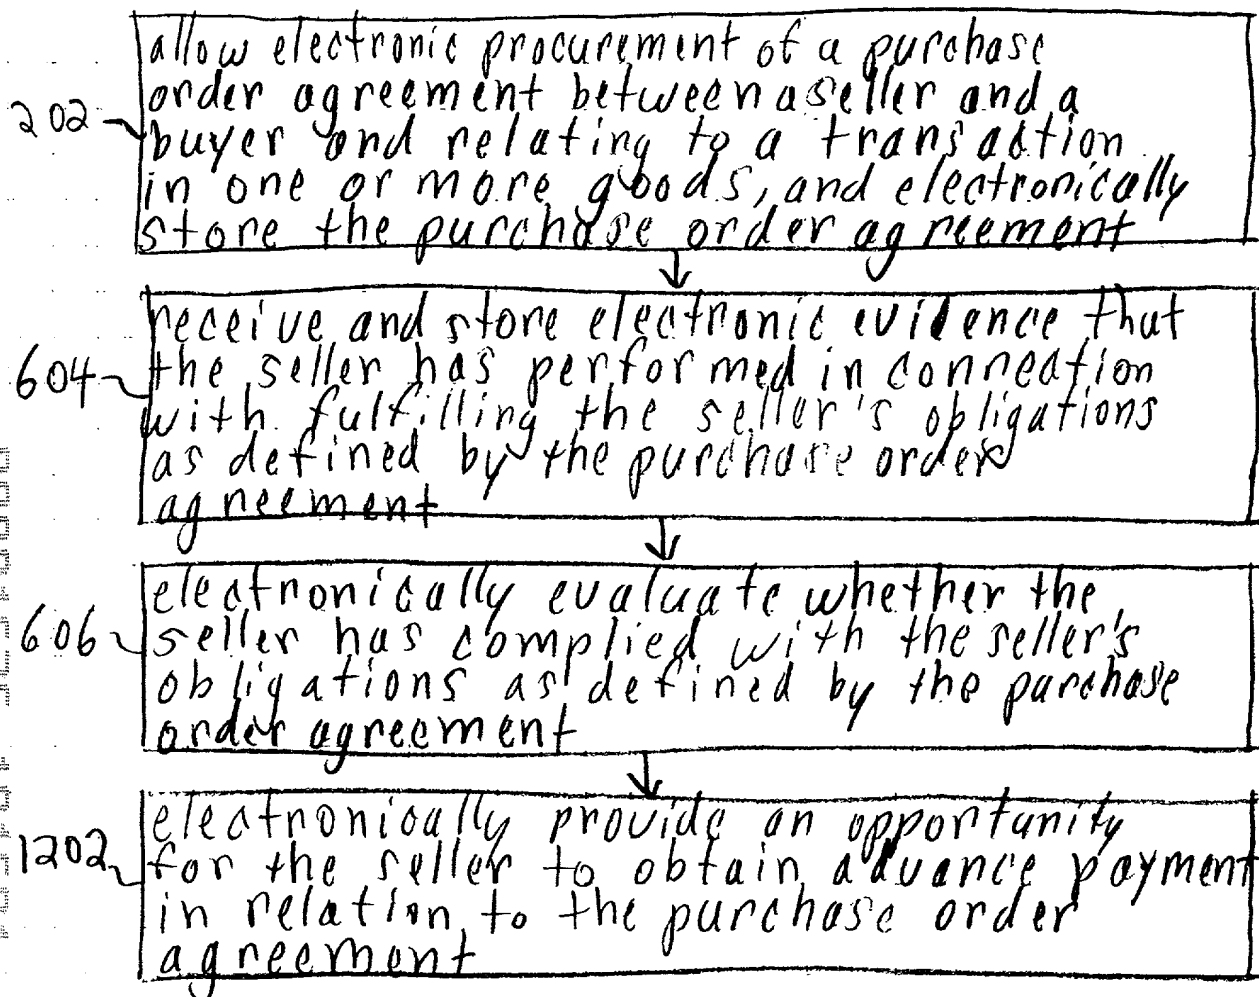 allow electronic procurement of a purchase
order agreement between a seller and a
202 buyer and relating to a transaction
in one or more goods, and electronically
store the purchase order agreement
receive and store electronic evidence that
604 the seller has performed in connection
with fulfilling the seller's obligations
as defined by the purchase order
agreement
electronically evaluate whether the
606 seller has complied with the seller's
obligations as defined by the purchase
order agreement
electronically provide an opportunity
1202 for the seller to obtain advance payment
in relation to the purchase order
agreement